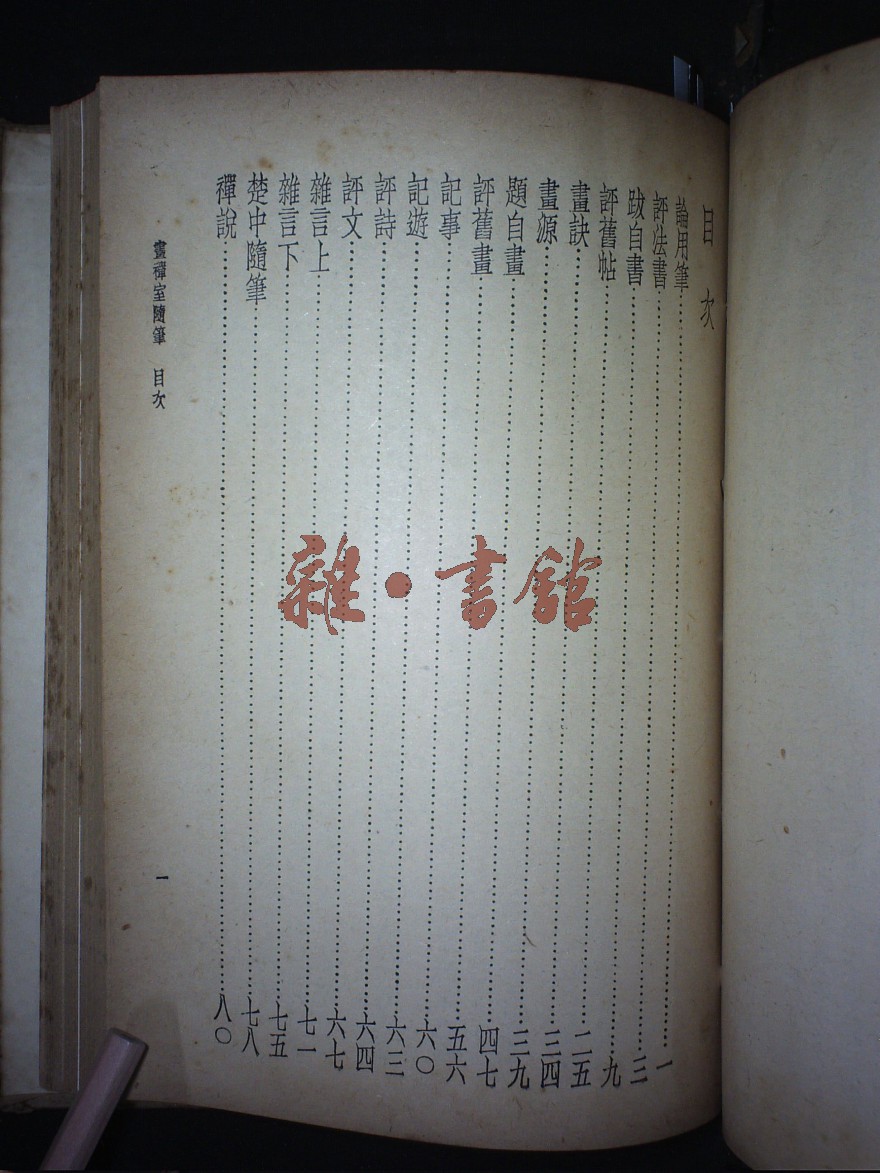 目次
論用筆……一
評法書……三
跋自書……九
評舊帖……二五
畫訣……三四
畫源……三九
題自畫……四七
評舊畫……五六
記事……六〇
記遊……六三
評詩……六四
評文……六七
雜言上……七一
雜言下……七五
楚中隨筆……七八
禪說……八〇
畫禪室隨筆 目次
一
雜·書館